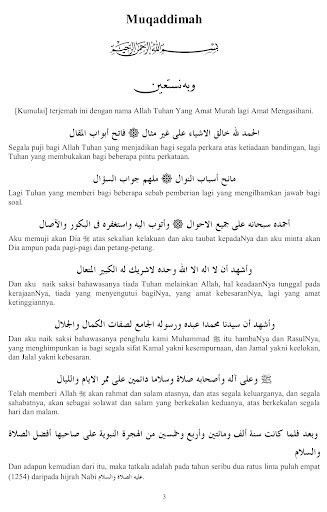 Muqaddimah
بسم الله الرحمن الرحيم
وبه نستعين
[Kumulai] terjemah ini dengan nama Allah Tuhan Yang Amat Murah lagi Amat Mengasihani.
الحمد لله خالق الاشياء على غير مثال ۞ فاتح أبواب المقال
Segala puji bagi Allah Tuhan yang menjadikan bagi segala perkara atas ketiadaan bandingan, lagi
Tuhan yang membukakan bagi beberapa pintu perkataan.
مانح أسباب النوال ۞ ملهم جواب السؤال
Lagi Tuhan yang memberi bagi beberapa sebab pemberian lagi yang mengilhamkan jawab bagi
soal.
أحمده سبحانه على جميع الاحوال ۞ وأتوب اليه واستغفره فى البكور والآصال
Aku memuji akan Dia ﷻ atas sekalian kelakuan dan aku taubat kepadaNya dan aku minta akan
Dia ampun pada pagi-pagi dan petang-petang.
وأشهد أن لا اله الا الله وحده لاشريك له الكبير المتعال
Dan aku naik saksi bahawasanya tiada Tuhan melainkan Allah, hal keadaanNya tunggal pada
kerajaanNya, tiada yang menyengutui bagiNya, yang amat kebesaranNya, lagi yang amat
ketinggiannya.
وأشهد أن سيدنا محمدا عبده ورسوله الجامع لصفات الكمال والجلال
Dan aku naik saksi bahawasanya penghulu kami Muhammad ﷺ itu hambaNya dan RasulNya,
yang menghimpunkan ia bagi segala sifat Kamal yakni kesempurnaan, dan Jamal yakni keelokan,
dan Jalal yakni kebesaran.
ﷺ وعلى آله وأصحابه صلاة وسلاما دائمين على ممر الايام والليال
Telah memberi Allah ﷻ akan rahmat dan salam atasnya, dan atas segala keluarganya, dan segala
sahabatnya, akan sebagai solawat dan salam yang berkekalan keduanya, atas berkekalan segala
hari dan malam.
وبعد فلما كانت سنة ألف ومائتين وأربع وخمسين من الهجرة النبوية على صاحبها أفضل الصلاة
والسلام
Dan adapun kemudian dari itu, maka tatkala adalah pada tahun seribu dua ratus lima puluh empat
(1254) daripada hijrah Nabi عليه الصلاة والسلام.
3